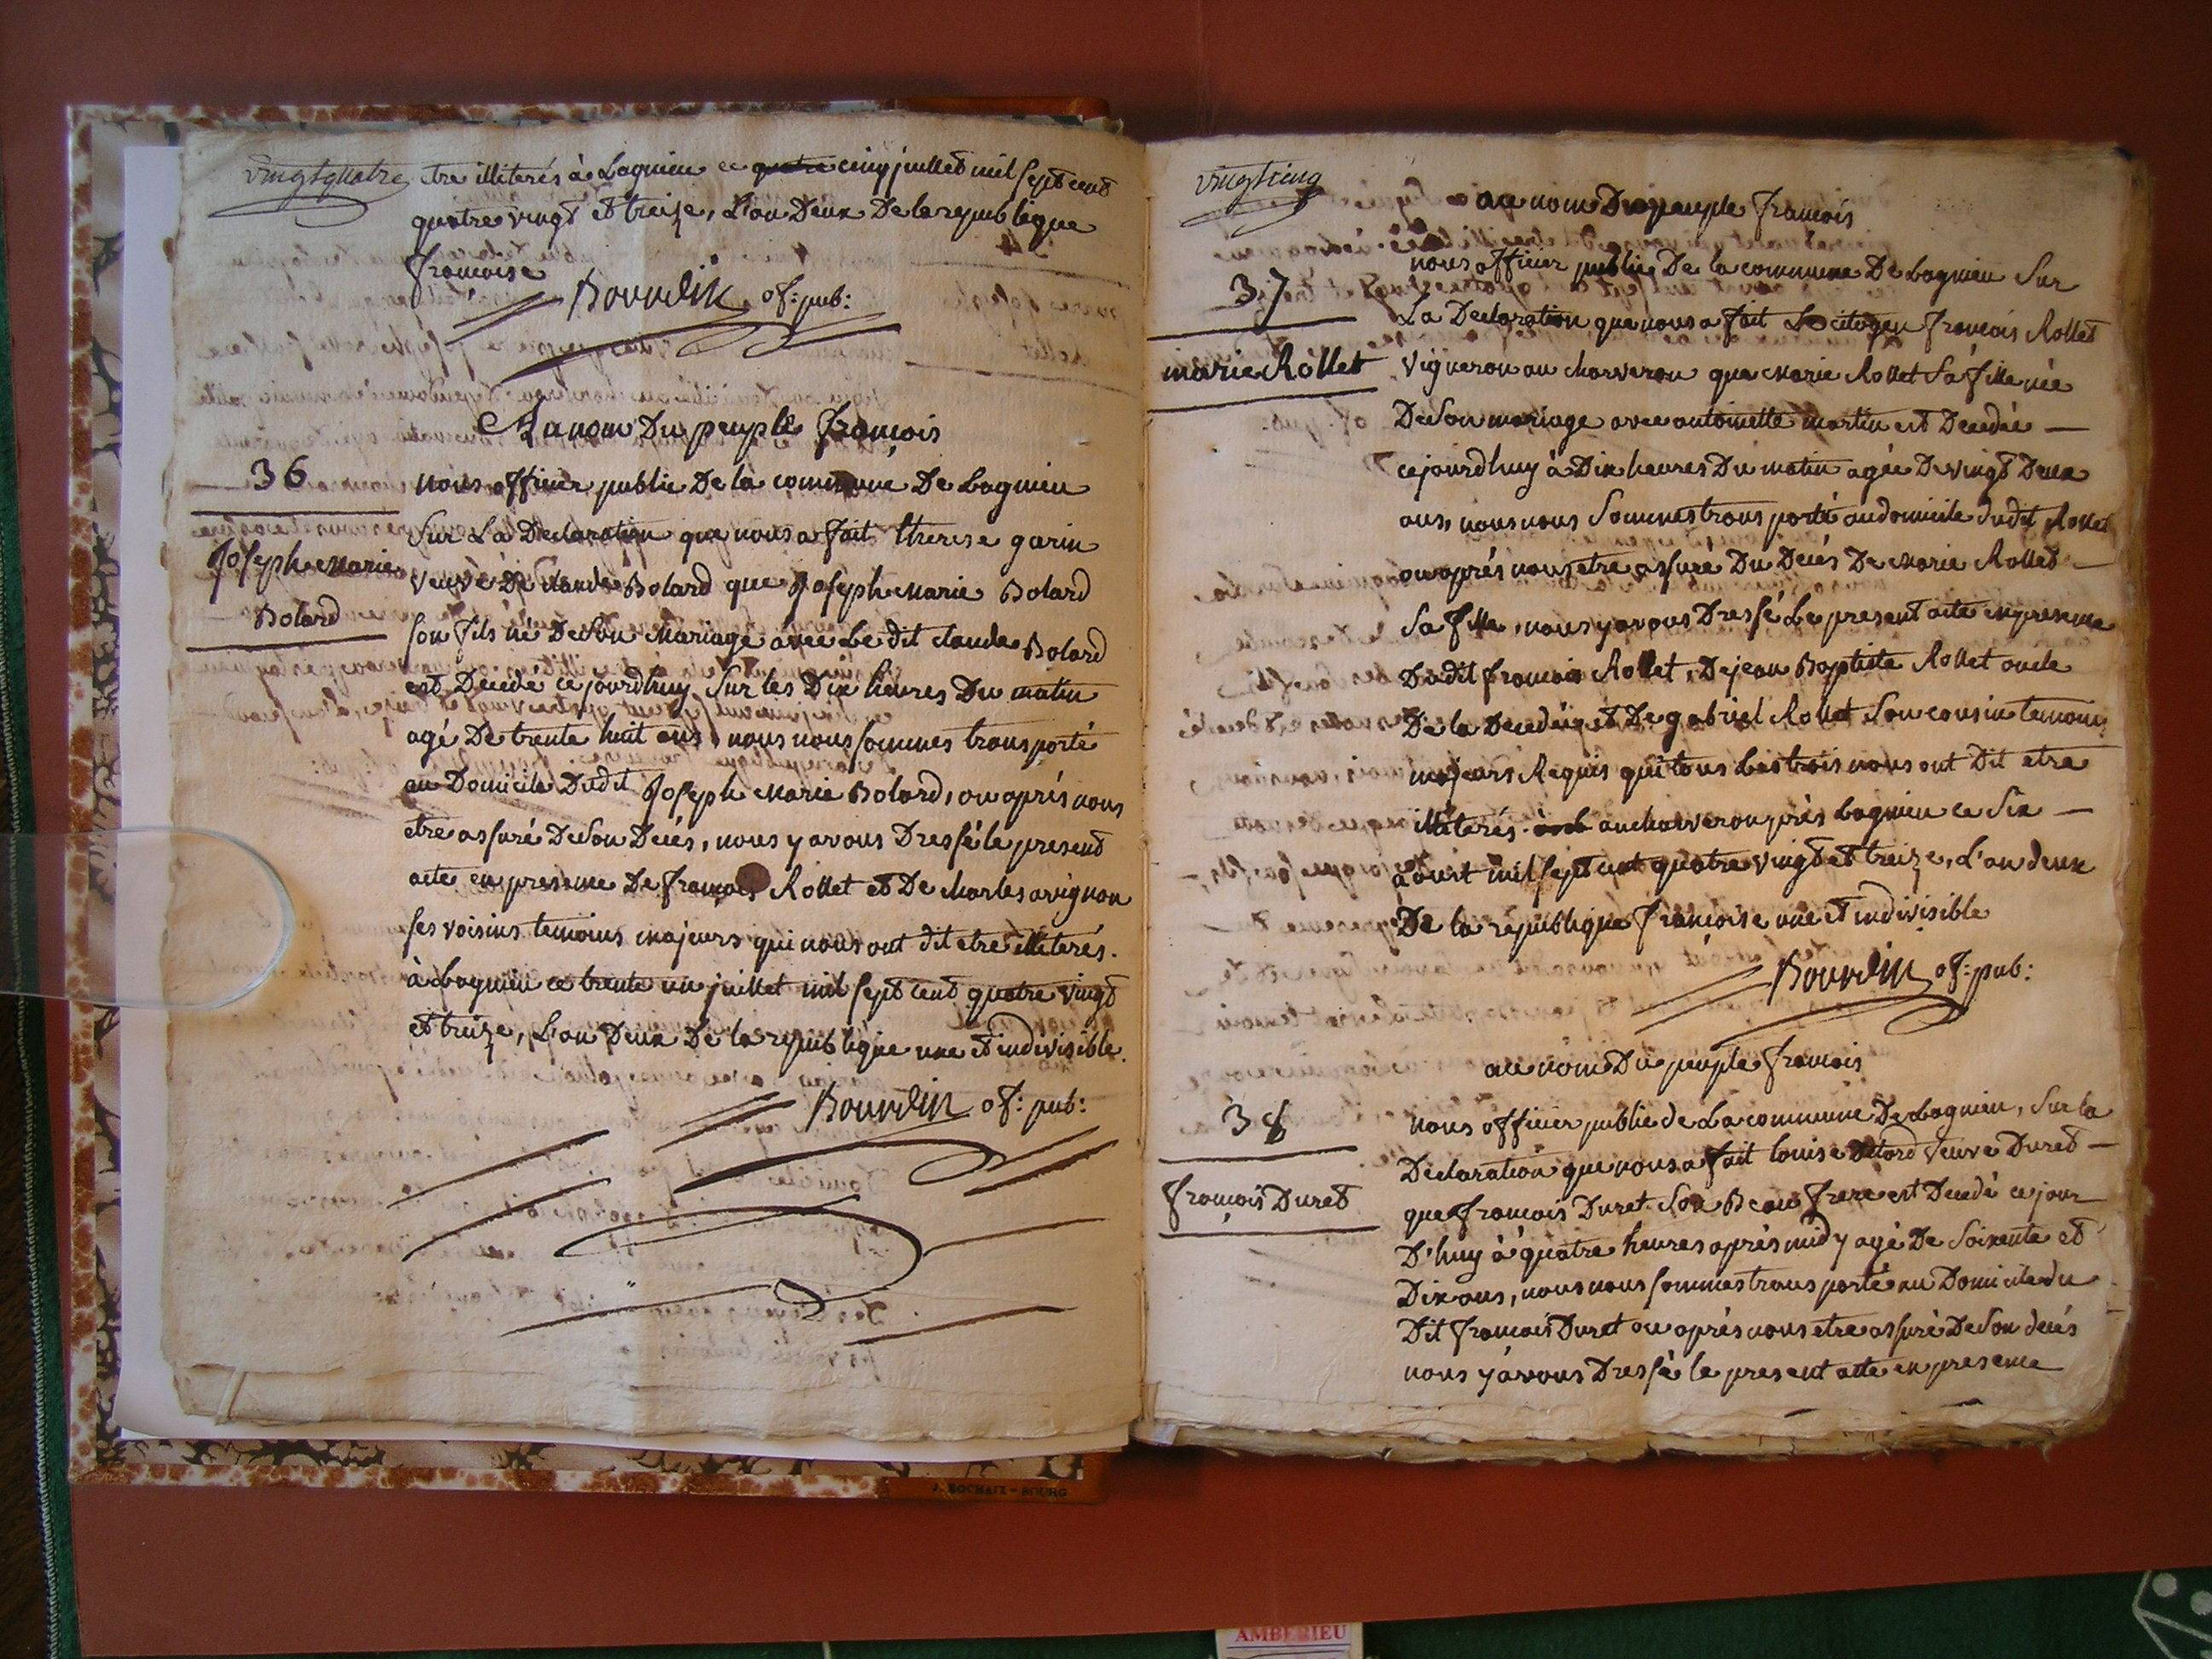 vingtquatre
etre illiterés à Lagnieu ce quatre cinq juillet mil sept cent
quatre vingt et treize, L'an Deux De la republique
francoise
Bourdin of: pub:
Au nom Du peuple francois
36
Joseph Marie
Bolard
nous officier public De la commune De Lagnieu
Sur La Declaration que nous a fait therese garin
veuve De Claude Bolard que Joseph Marie Bolard
son fils né De Son Mariage avec Le dit claude Bolard
est Decedé ce jourdhuy Sur les Dix heures Du matin
agé De trente huit ans, nous nous sommes transporté
au Domicile Dudit Joseph Marie Bolard, ou aprés nous
etre assuré De Son Decés, nous y avons Dressé le present
acte en presence De francois Rollet et De charles avignon
ses voisins temoins majeurs qui nous ont dit etre illiterés.
à Lagnieu ce trente un juillet mil sept cent quatre vingt
et treize, L'an Deux De la republique une et indivisible.
Bourdin of: pub:
vingtcinq
au nom Du peuple francois
37
marie Rollet
nous officier public De la commune De Lagnieu Sur
La Declaration que nous a fait Le citoyen francois Rollet
vigneron au charveron que Marie Rollet Sa fille née
De Son mariage avec antoinette martin est Decedée —
cejourdhuy à Dix heures Du matin agée De vingt Deux
ans, nous nous Sommes transporté au domicile dudit Rollet
ou aprés nous etre assuré Du Decés De Marie Rollet —
Sa fille, nous y avons Dressé Le present acte en presence
Dudit francois Rollet, De jean Baptiste Rollet oncle
De la Decedée et De gabriel Rollet Son cousin temoins
majeurs Requis qui tous Les trois nous ont Dit etre
illiterés au charveron près Lagnieu ce Six —
aoust mil sept cent quatre vingt et treize, L'an deux
De la republique francoise une et indivisible
Bourdin of: pub:
au nom Du peuple francois
38
françois Duret
nous officier public de La commune De Lagnieu, Sur la
Declaration que nous a fait louise veuve Duret —
que francois Duret Son Beau frere est Decedé ce jour
D'huy à quatre heures aprés midy agé De Soixante et
Dix ans, nous nous sommes transporté au Domicile du
Dit francois Duret ou aprés nous etre assuré De Son decés
nous y avons Dressé le present acte en presence
J. ROCHAIX - BOURG
AMBERIEU